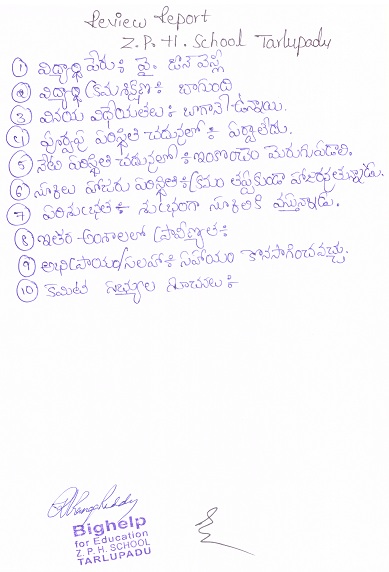 Review Report
Z. P. H. School Tarlupadu
① విద్యార్థి పేరు : వై. జాన్ వెస్లీ
② విద్యార్థి క్రమశిక్షణ : బాగుంది
③ వినయ విధేయతలు : బాగానే ఉన్నాయి.
④ పూర్వపు పరిస్థితి చదువులో : పర్వాలేదు.
⑤ నేటి పరిస్థితి చదువులో : ఇంకొంచెం మెరుగుపడాలి.
⑥ స్కూలు హాజరు పరిస్థితి : క్రమం తప్పకుండా హాజరవుతున్నాడు.
⑦ పరిశుభ్రత : శుభ్రంగా స్కూలికి వస్తున్నాడు.
⑧ ఇతర అంశాలలో ప్రావీణ్యత :
⑨ అభిప్రాయం/సలహా : సహాయం కొనసాగించవచ్చు.
⑩ కమిటి సభ్యుల సూచనలు :
Bighelp
for Education
Z. P. H. SCHOOL
TARLUPADU